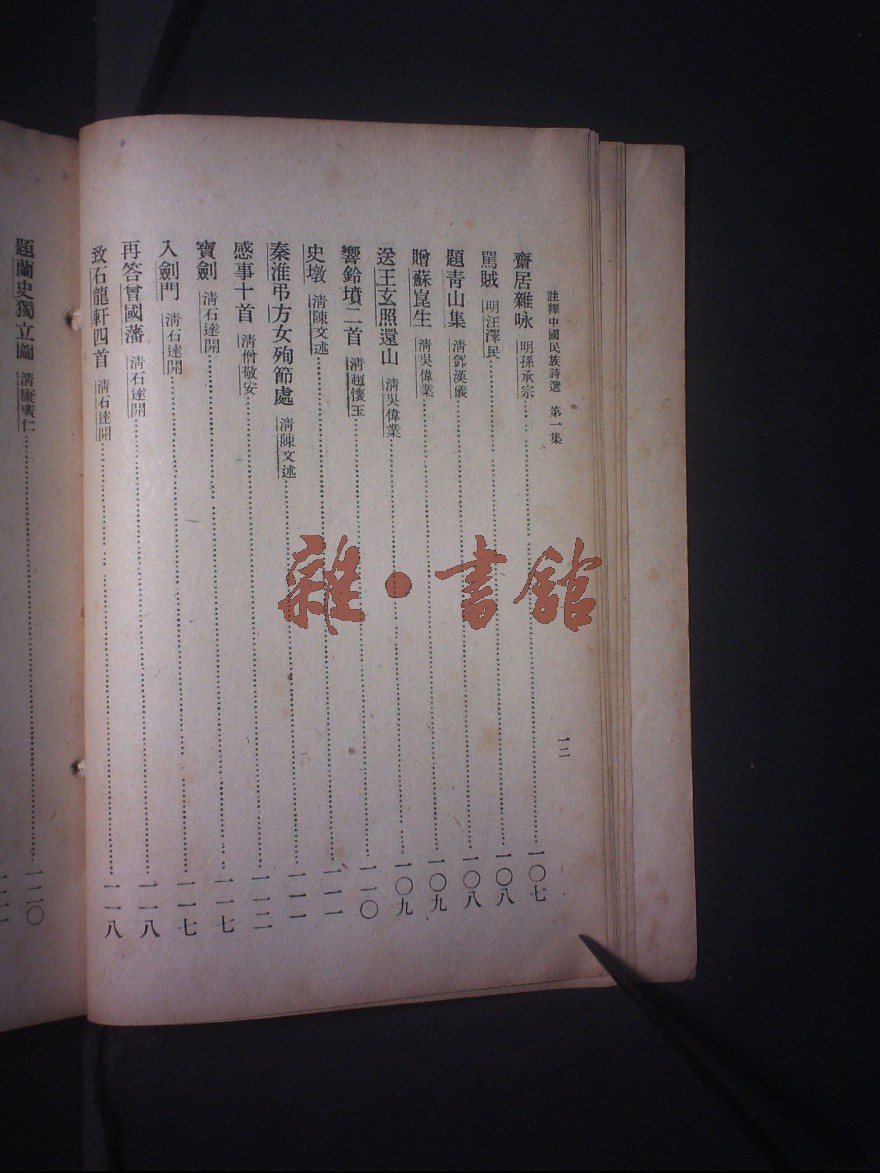 註釋中國民族詩選 第一集
一二
齋居雜咏 明孫承宗 一〇七
罵賊 明汪澤民 一〇八
題青山集 清鄧漢儀 一〇八
贈蘇崑生 清吳偉業 一〇九
送王玄照還山 清吳偉業 一〇九
響鈴墳二首 清趙懷玉 一一〇
史墩 清陳文述 一一一
秦淮弔方女殉節處 清陳文述 一一一
感事十首 清僧敬安 一一二
寶劍 清石達開 一一七
入劍門 清石達開 一一七
再答曾國藩 清石達開 一一八
致石龍軒四首 清石達開 一一八
題蘭史獨立圖 清康廣仁 一二〇
雜·書館